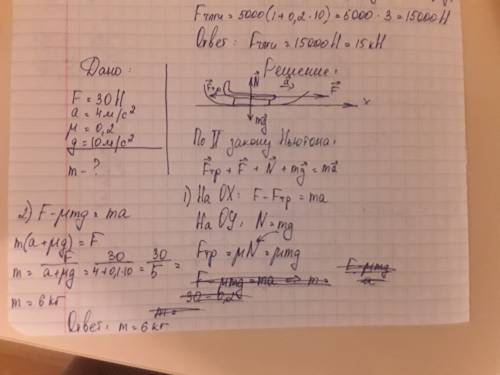 Fтяги = 5000(1+0,2·10) = 5000·3 = 15000Н
Ответ: Fтяги = 15000Н = 15кН
Дано:
F = 30Н
a = 4м/с²
μ = 0,2
g = 10м/с²
m - ?
Решение:
Fтр N a F
mg x
По II закону Ньютона:
Fтр + F + N + mg = ma
1) На ОХ: F - Fтр = ma
На ОУ: N = mg
Fтр = μN = μmg
F - μmg = ma => m = F - μmg / a
30 - 0,2
m =
2) F - μmg = ma
m(a+μg) = F
m = F / a+μg = 30 / 4+0,1·10 = 30 / 5 =
m = 6 кг
Ответ: m = 6 кг